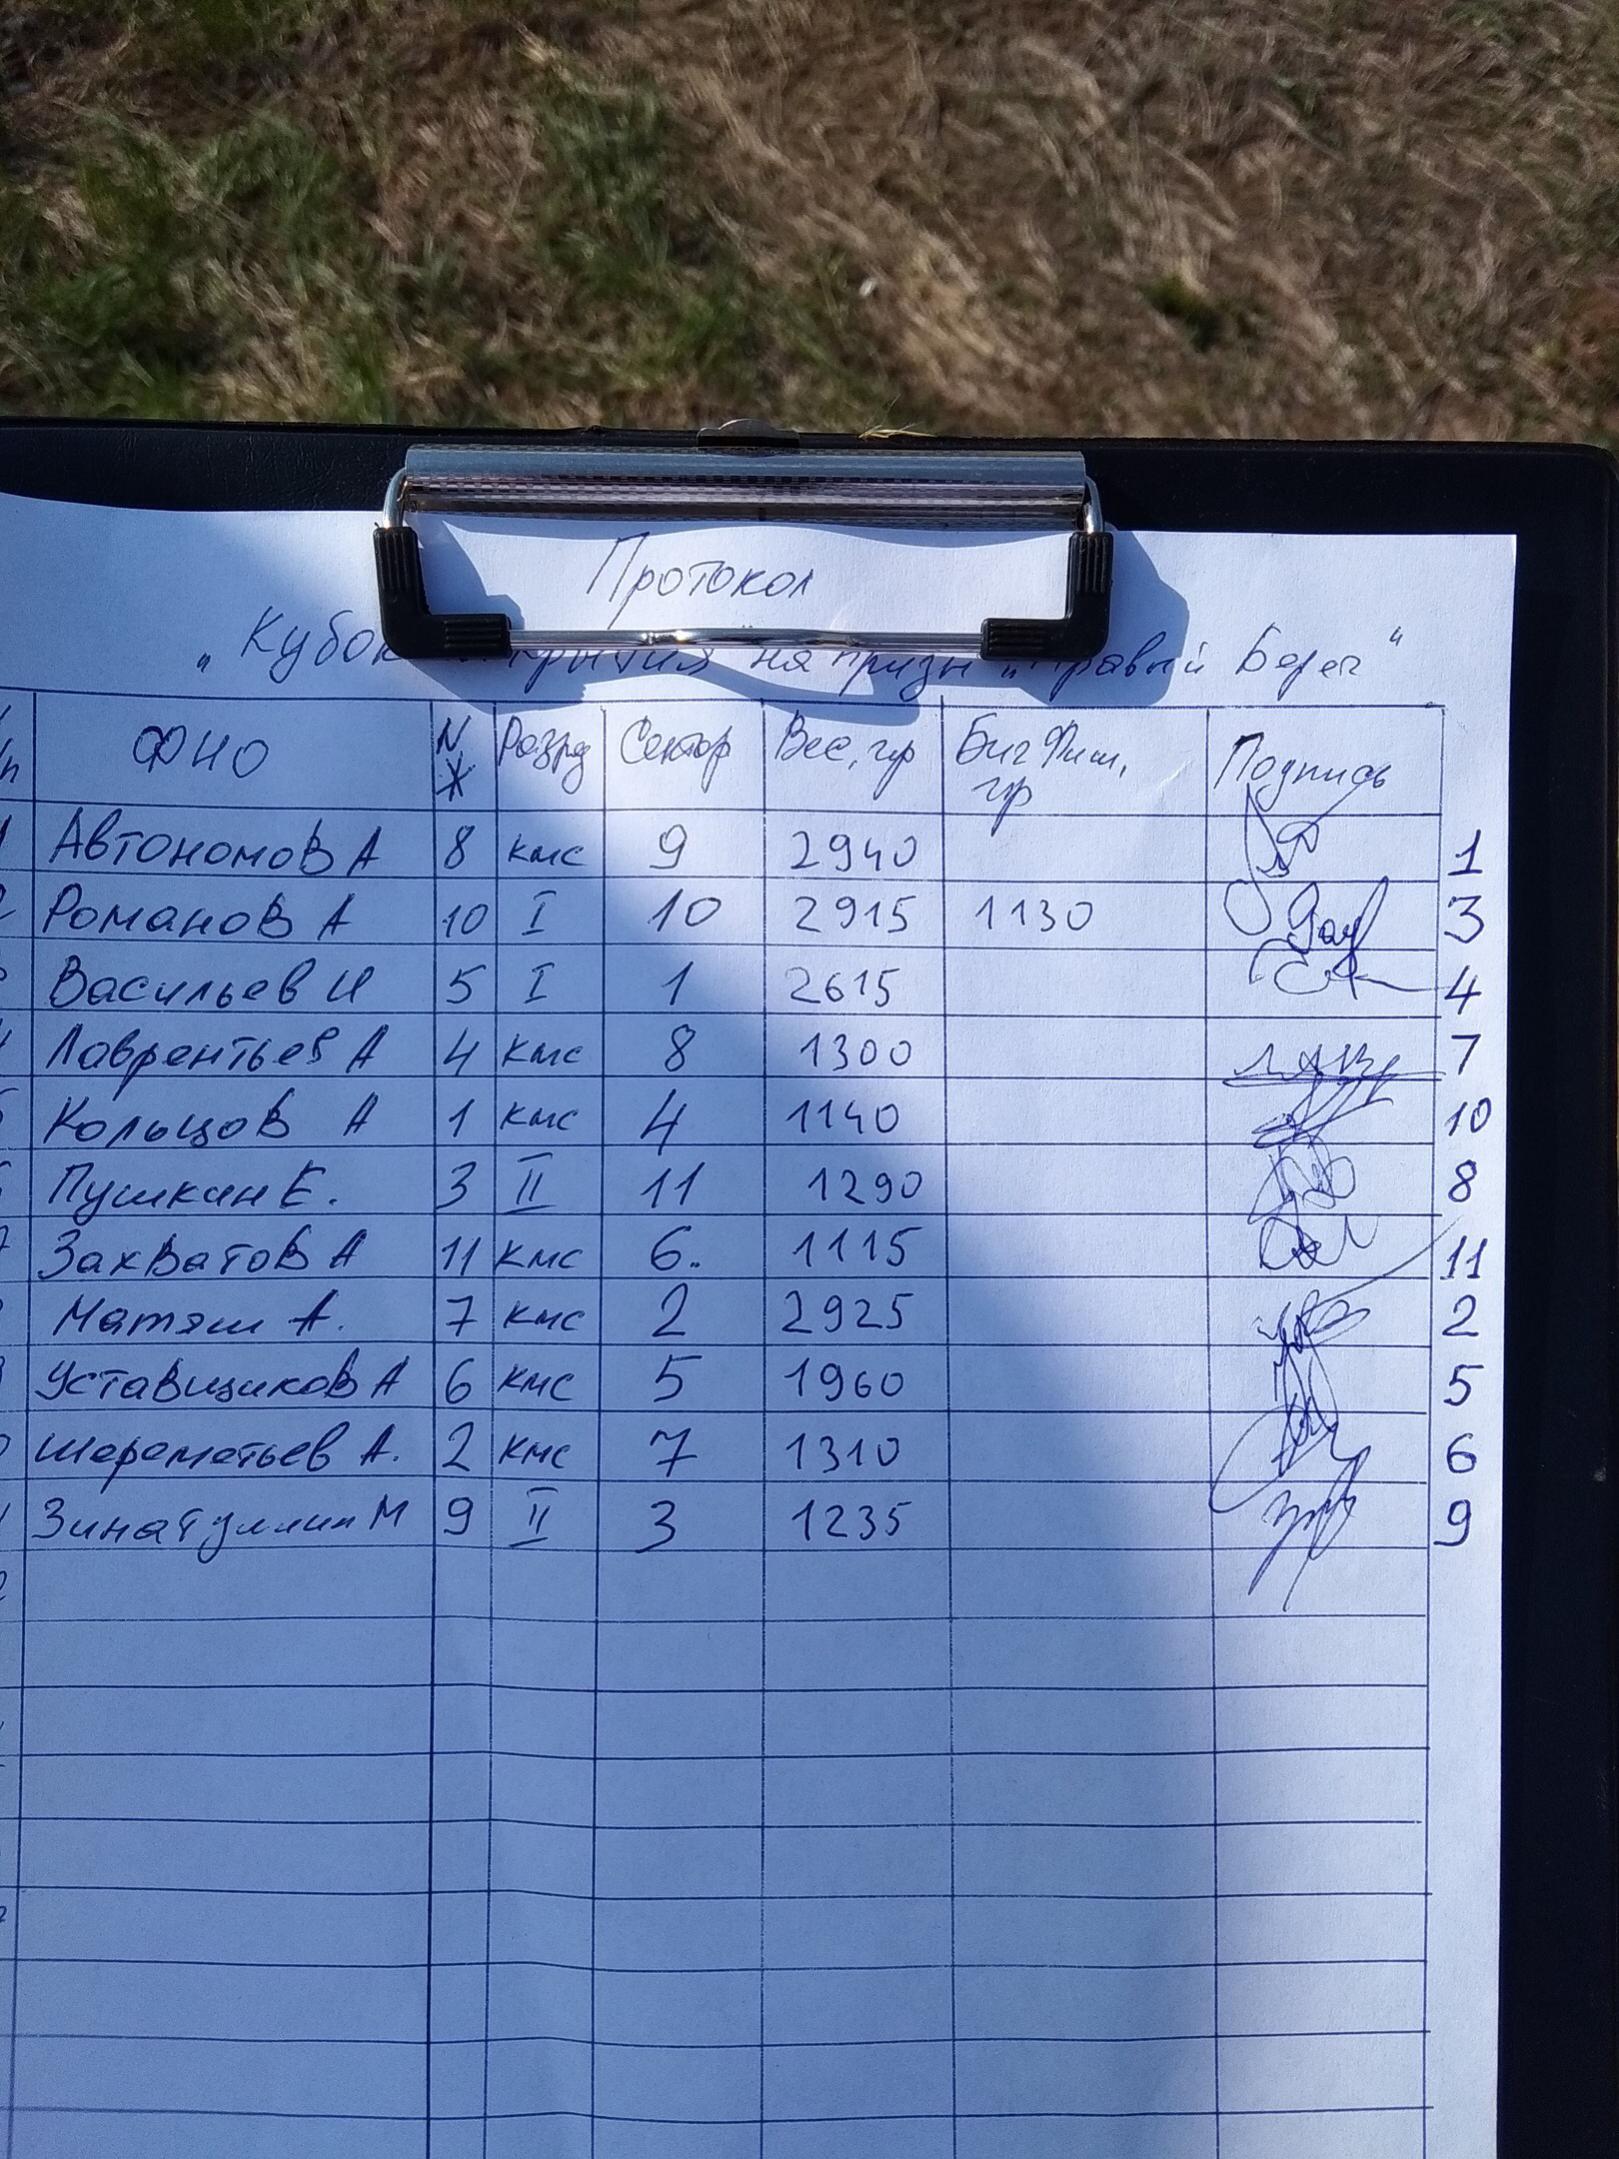 Протокол
"Кубок на призы "Правый Берег"
ФИО N Ж Разряд Сектор Вес, гр Биг Фиш, гр Подпись
Автономов А 8 кмс 9 2940 1
Романов А 10 I 10 2915 1130 3
Васильев И 5 I 1 2615 4
Лаврентьев А 4 кмс 8 1300 7
Кольцов А 1 кмс 4 1140 10
Пушкин Е. 3 II 11 1290 8
Захватов А 11 кмс 6.. 1115 11
Матяш А. 7 кмс 2 2925 2
Уставщиков А 6 кмс 5 1960 5
Шереметьев А. 2 кмс 7 1310 6
Зинатуллин М 9 II 3 1235 9